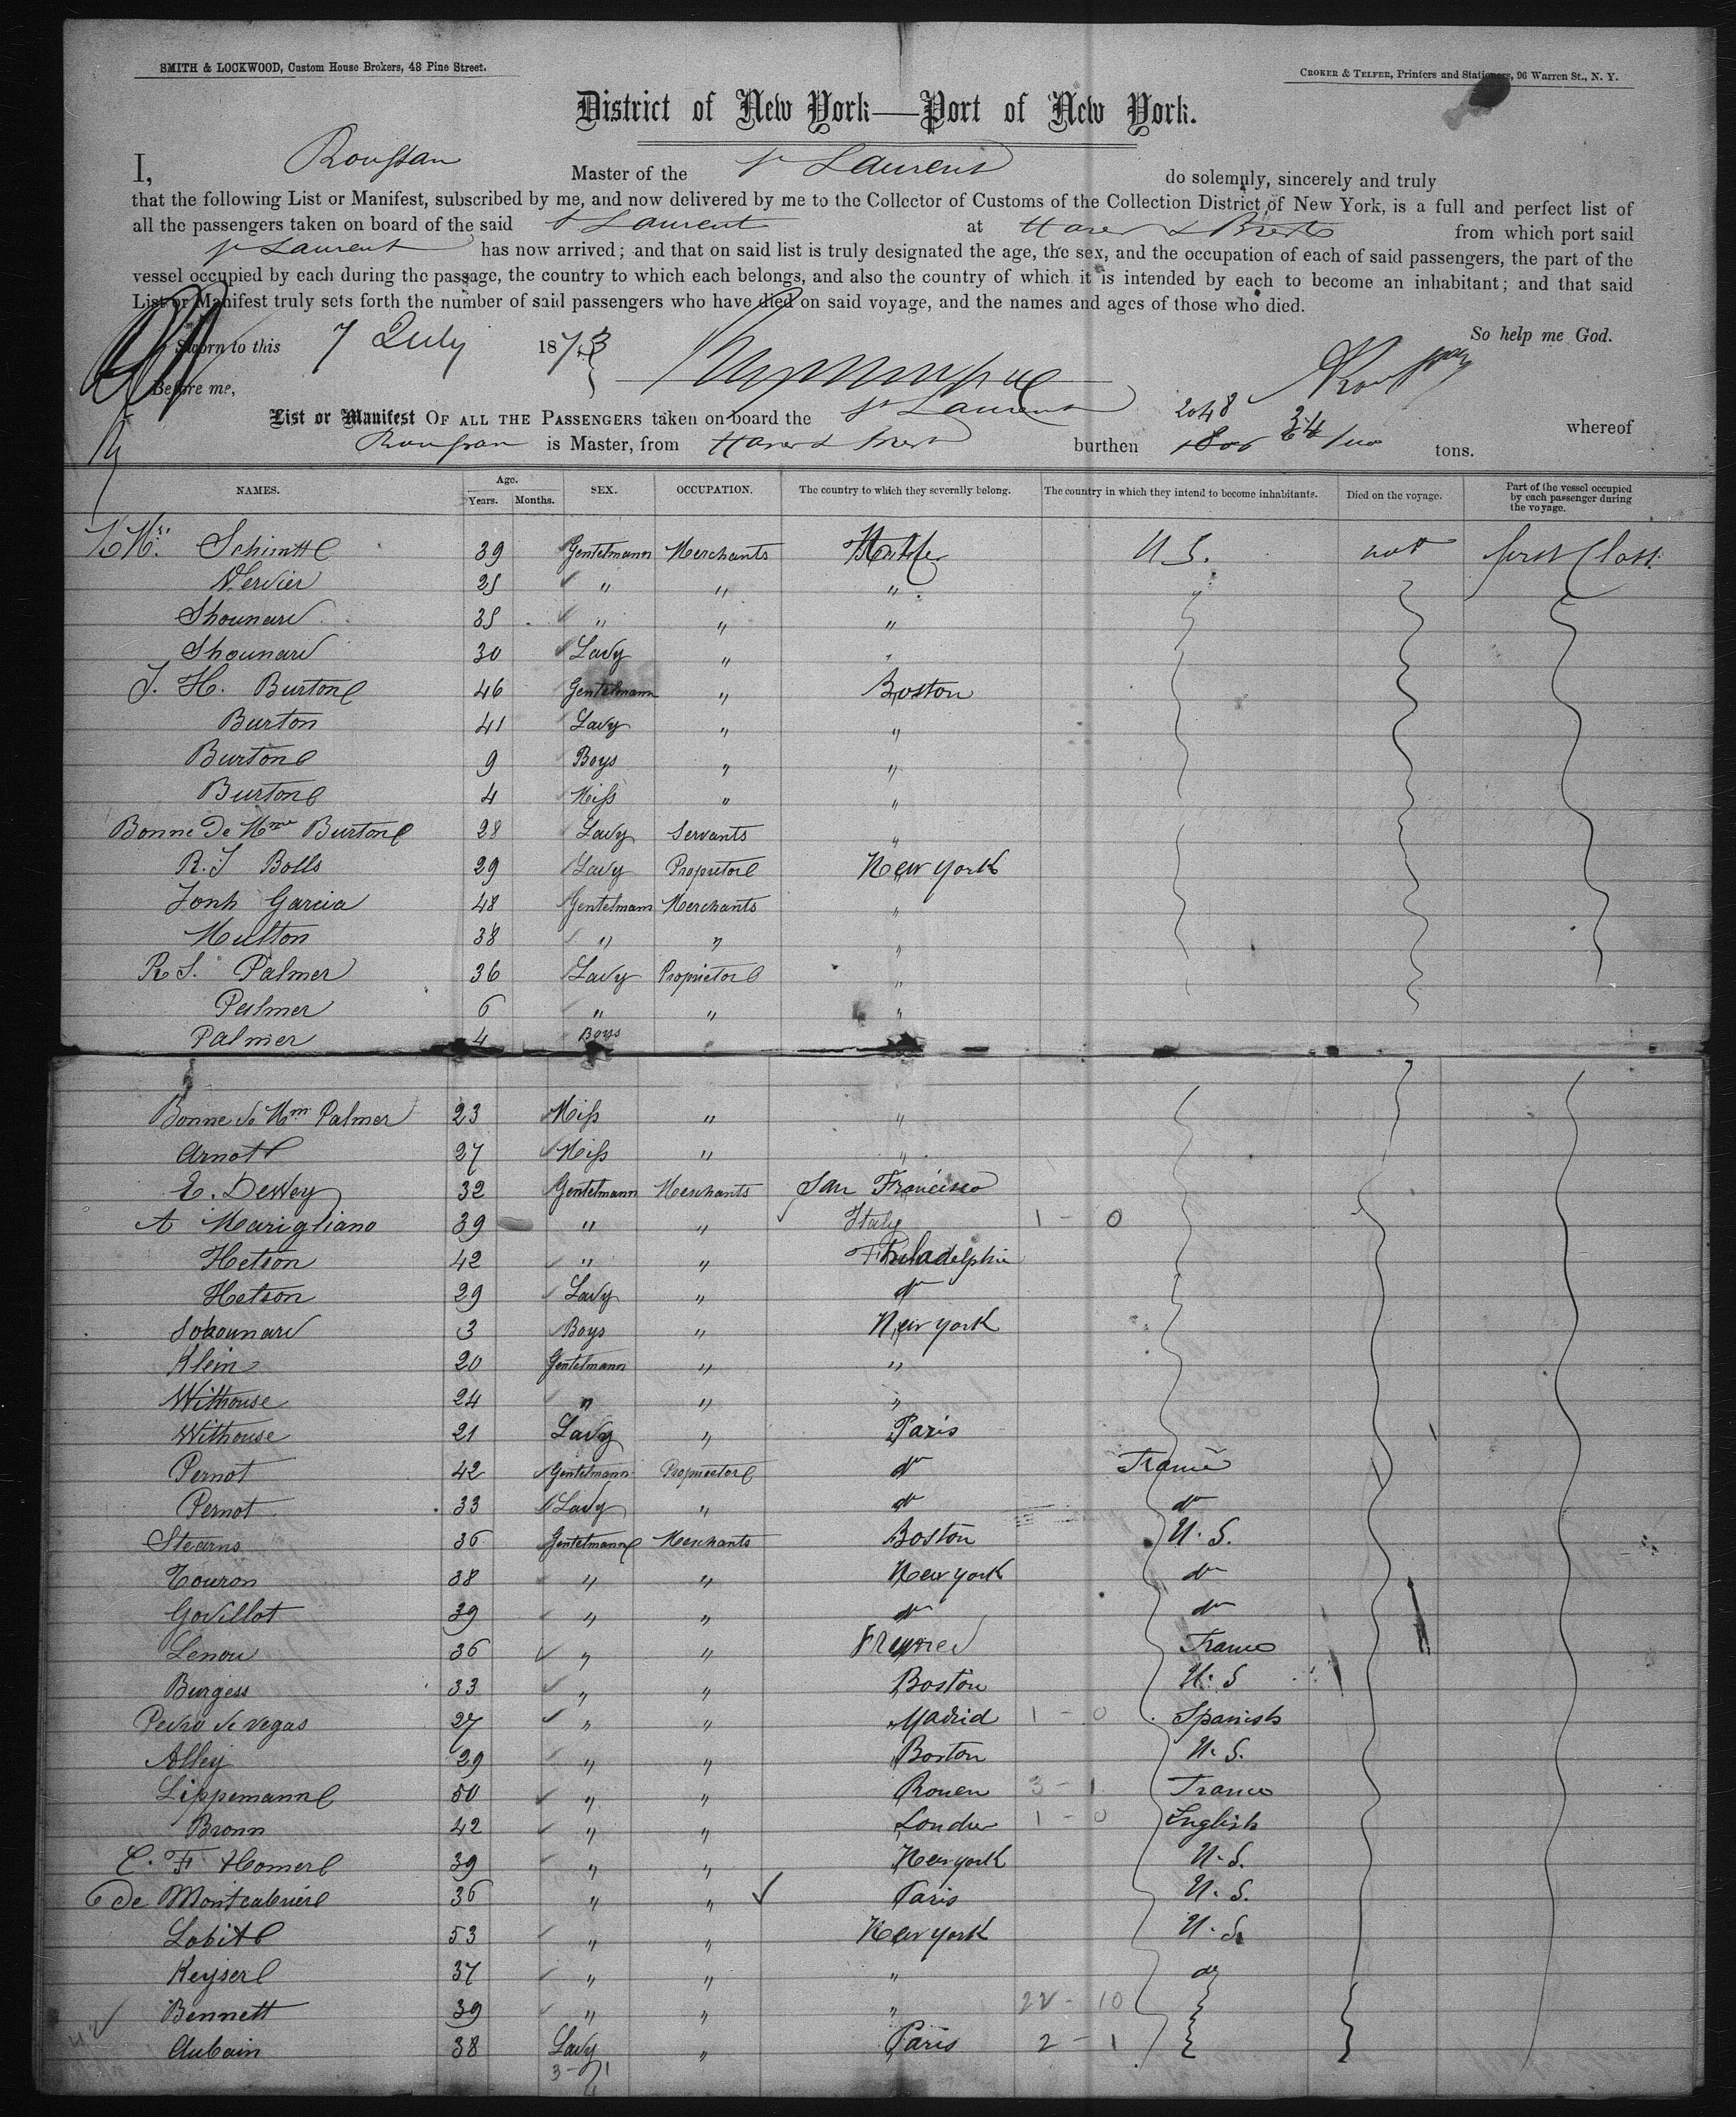 SMITH & LOCKWOOD, Custom House Brokers, 48 Pine Street.
CROKER & TELFER, Printers and Stationers, 96 Warren St., N. Y.
District of New York—Port of New York.
I, Roussan Master of the St Laurent do solemnly, sincerely and truly
that the following List or Manifest, subscribed by me, and now delivered by me to the Collector of Customs of the Collection District of New York, is a full and perfect list of
all the passengers taken on board of the said St Laurent at Havre & Brest from which port said
St Laurent has now arrived; and that on said list is truly designated the age, the sex, and the occupation of each of said passengers, the part of the
vessel occupied by each during the passage, the country to which each belongs, and also the country of which it is intended by each to become an inhabitant; and that said
List or Manifest truly sets forth the number of said passengers who have died on said voyage, and the names and ages of those who died.
So help me God.
Sworn to this 7 July 1873
Before me,
List or Manifest OF ALL THE PASSENGERS taken on board the St Laurent 2048 34/100 whereof
Roussan is Master, from Havre & Brest burthen tons.
NAMES. Age. Years. Months. SEX. OCCUPATION. The country to which they severally belong. The country in which they intend to become inhabitants. Died on the voyage. Part of the vessel occupied by each passenger during the voyage.
Schimtt 39 Gentelmann Merchants U S. not first Class.
Vervier 25 " " "
Shounard 35 " " "
Shounard 30 Lady " "
J. H. Burton 46 Gentelmann " Boston
Burton 41 Lady " "
Burton 9 Boys " "
Burton 4 Miss " "
Bonne De Mme Burton 28 Lady Servants "
R. J Bolls 29 Lady Proprietor New york
Jonh Garcia 48 Gentelmann Merchants "
Multon 38 " " "
R S. Palmer 36 Lady Proprietor "
Palmer 6 " " "
Palmer 4 Boys
Bonne de Mm Palmer 23 Miss " "
Arnott 27 Miss " "
E. Dewey 32 Gentelmann Merchants San Francisco
A Marigliano 39 " " Italy 1 - 0
Hetson 42 " " Philadelphie
Hetson 29 Lady " do
Schounard 3 Boys " New york
Klein 20 Gentelmann " "
Withouse 24 " " "
Withouse 21 Lady " Paris
Pernot 42 Gentelmann Proprietor do France
Pernot 33 Lady " do do
Stearns 36 Gentelmann Merchants Boston U. S.
Touron 38 " " New york do
Govillot 39 " " do do
Lenou 36 " " France
Burgess 33 " " Boston U. S
Pedro de Vegas 27 " " Madrid 1 - 0 Spanish
Alley 29 " " Boston U. S.
Lippemann 50 " " Rouen 3 - 1 France
Bronn 42 " " Londres 1 - 0 English
C. F Homer 39 " " New york U. S.
de Montcabrier 36 " " Paris U. S.
Lobit 53 " " New york U. S.
Keyser 37 " " " do
Bennett 39 " " " 22 - 10
Aubain 38 Lady " Paris 2 - 1
3 - 1